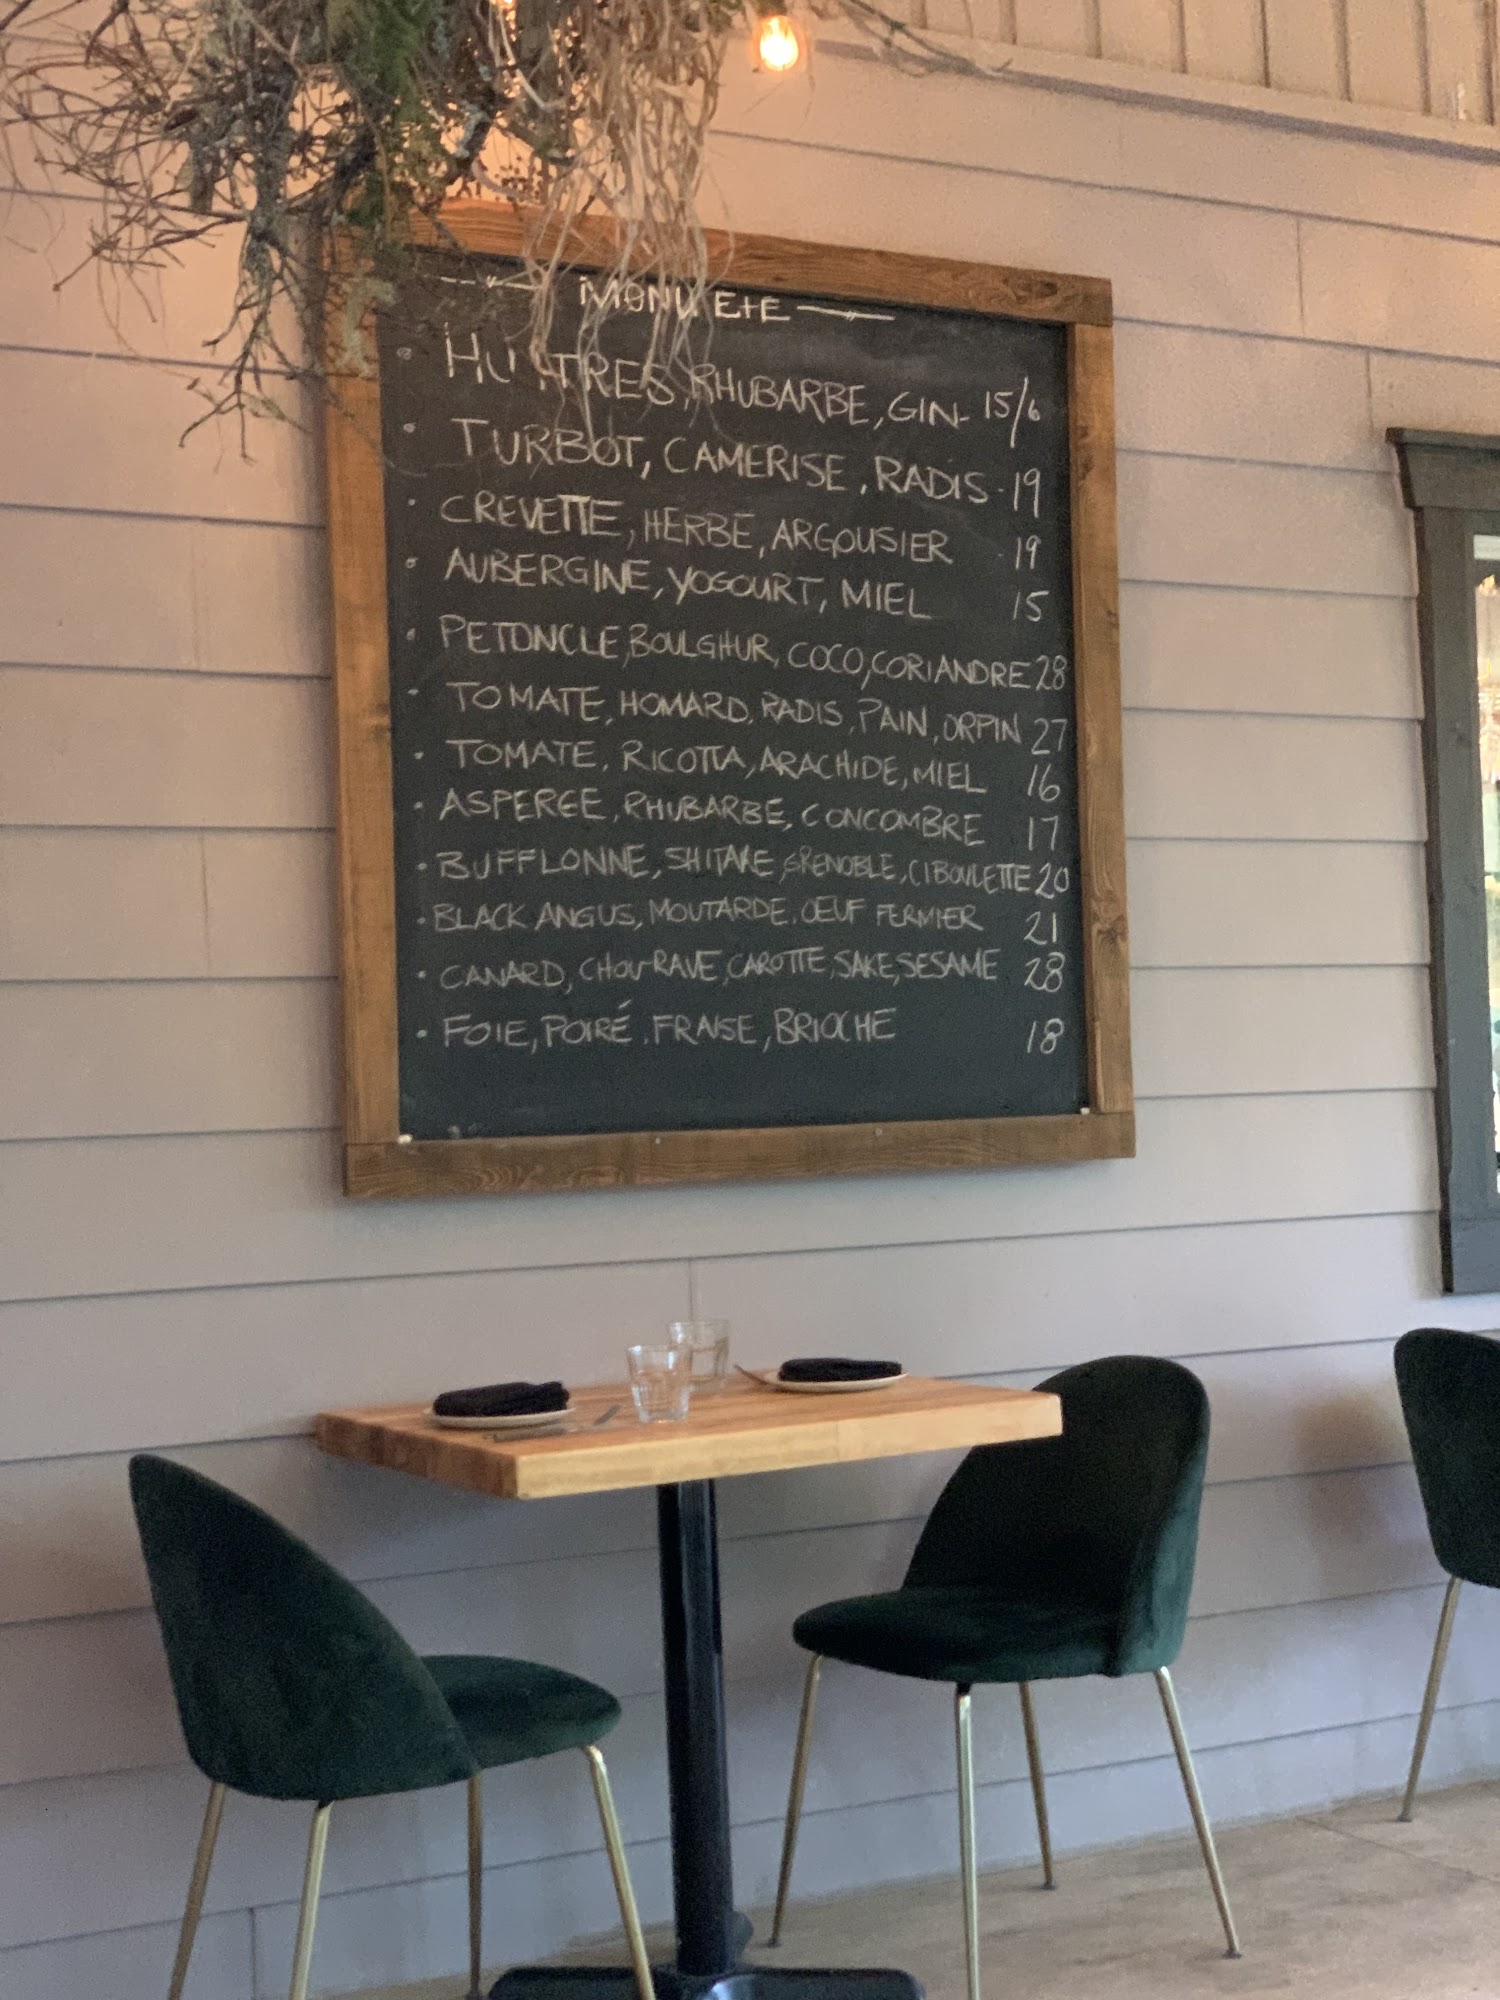 MENU ÉTÉ
• HUITRES, RHUBARBE, GIN - 15/6
• TURBOT, CAMERISE, RADIS - 19
• CREVETTE, HERBE, ARGOUSIER - 19
• AUBERGINE, YOGOURT, MIEL 15
• PETONCLE, BOULGHUR, COCO, CORIANDRE 28
• TOMATE, HOMARD, RADIS, PAIN, ORPIN 27
• TOMATE, RICOTTA, ARACHIDE, MIEL 16
• ASPERGE, RHUBARBE, CONCOMBRE 17
• BUFFLONNE, SHITAKE, GRENOBLE, CIBOULETTE 20
• BLACK ANGUS, MOUTARDE, OEUF FERMIER 21
• CANARD, CHOU-RAVE, CAROTTE, SAKE, SESAME 28
• FOIE, POIRÉ, FRAISE, BRIOCHE 18